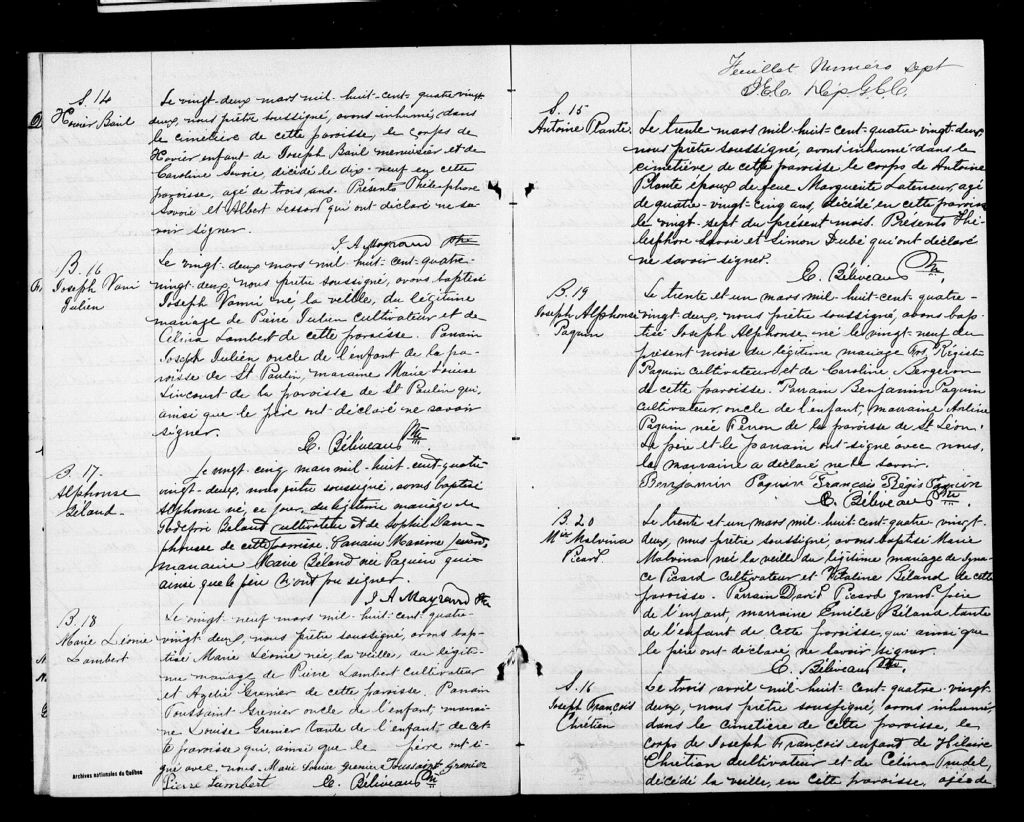 S. 14
Hovier Baril
Le vingt-deux mars mil-huit-cent-quatre vingt-
deux, nous prêtre soussigné, avons inhumé, dans
le cimetière de cette paroisse, le corps de
Hovier enfant de Joseph Baril menuisier et de
Caroline Savoie, décidé le dix-neuf en cette
paroisse, agé de trois ans. Présents Thélesphore
Savoie et Albert Lessard qui ont déclaré ne sa-
voir signer.
J. A. Mayrand Ptre
B. 16
Joseph
Julien
Le vingt-deux mars mil-huit-cent-quatre-
vingt-deux, nous prêtre soussigné, avons baptisé
Joseph né la veille, du légitime
mariage de Pierre Julien cultivateur et de
Célina Lambert de cette paroisse. Parrain
Joseph Julien oncle de l'enfant de la pa-
roisse de St Paulin, marraine Marie Louise
Lincourt de la paroisse de St Paulin qui,
ainsi que le père ont déclaré ne savoir
signer.
E. Béliveau Ptre
B. 17-
Alphonse
Béland-
Le vingt-cinq mars mil-huit-cent-quatre-
vingt-deux, nous prêtre soussigné, avons baptisé
Alphonse né, ce jour, du légitime mariage de
Godefroi Béland cultivateur et de Sophie Lam-
phousse de cette paroisse. Parrain Maxime
marraine Marie Béland née Paquin qui
ainsi que le père n'ont pu signer.
J. A. Mayrand Ptre
B. 18
Marie Léonie
Lambert
Le vingt-neuf mars mil-huit-cent-quatre-
vingt-deux, nous prêtre soussigné, avons bap-
tisé Marie Léonie née, la veille, du légiti-
me mariage de Pierre Lambert cultivateur
et Azélie Grenier de cette paroisse. Parrain
Toussaint Grenier oncle de l'enfant, marrai-
ne Louise Grenier tante de l'enfant, de cet-
te paroisse qui, ainsi que le père ont si-
gné avec nous. Marie Louise Grenier Toussaint Grenier
Pierre Lambert E. Béliveau Ptre
Archives nationales du Québec
Feuillet Numéro sept
Dép. G.C.C.
S. 15
Antoine Plante
Le trente mars mil-huit-cent-quatre vingt-deux,
nous prêtre soussigné, avons inhumé dans le
cimetière de cette paroisse le corps de Antoine
Plante époux de feue Marguerite Lateneur, agé
de quatre-vingt-cinq ans, décidé, en cette paroisse
le vingt-sept du présent mois. Présents Thé-
lesphore Savoie et Simon Dubé qui ont déclaré
ne savoir signer.
E. Béliveau Ptre
B. 19
Joseph Alphonse
Paquin
Le trente et un mars mil-huit-cent-quatre-
vingt-deux, nous prêtre soussigné, avons bap-
tisé Joseph Alphonse né le vingt-neuf du
présent mois du légitime mariage Frs Régis
Paquin cultivateur, et de Caroline Bergeron
de cette paroisse. Parrain Benjamin Paquin
cultivateur, oncle de l'enfant, marraine Arline
Paquin née Perron de la paroisse de St Léon.
Le père et le parrain ont signé avec nous,
la marraine a déclaré ne le savoir.
Benjamin Paquin François Régis Paquin
E. Béliveau Ptre
B. 20
Mie Malvina
Picard.
Le trente et un mars mil-huit-cent-quatre-vingt-
deux, nous prêtre soussigné, avons baptisé Marie
Malvina née la veille du légitime mariage de Igna-
ce Picard cultivateur et Vitaline Béland de cette
paroisse. Parrain David Picard grand-père
de l'enfant, marraine Emilie Béland tante
de l'enfant de cette paroisse, qui ainsi que
le père ont déclaré ne savoir signer.
E. Béliveau Ptre
S. 16
Joseph François
Chrétien
Le trois avril mil-huit-cent-quatre-vingt-
deux, nous prêtre soussigné, avons inhumé,
dans le cimetière de cette paroisse, le
corps de Joseph François enfant de Hilaire
Chrétien cultivateur et de Célina Trudel,
décidé la veille, en cette paroisse, agée de